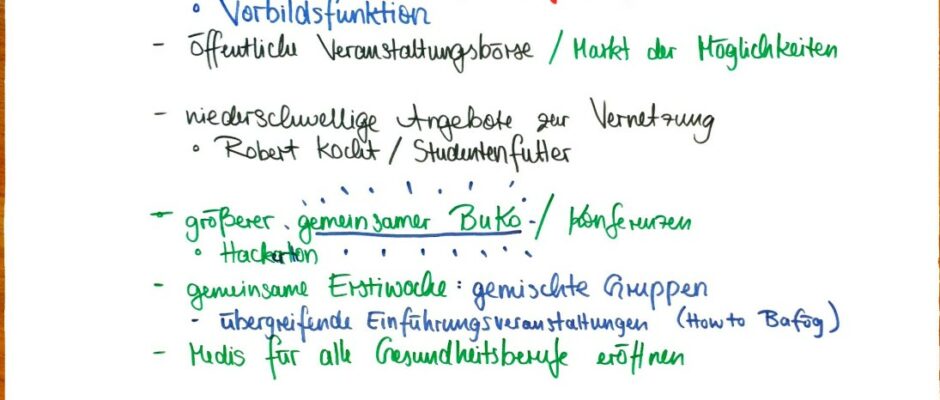 ◦ Vorbildsfunktion
- öffentliche Veranstaltungsbörse / Markt der Möglichkeiten
- niederschwellige Angebote zur Vernetzung
◦ Robert kocht / Studentenfutter
- größerer gemeinsamer BuKo / Konferenzen
◦ Hackerton
- gemeinsame Erstiwoche: gemischte Gruppen
- übergreifende Einführungsveranstaltungen (How to Bafög)
- Medis für alle Gesundheitsberufe eröffnen